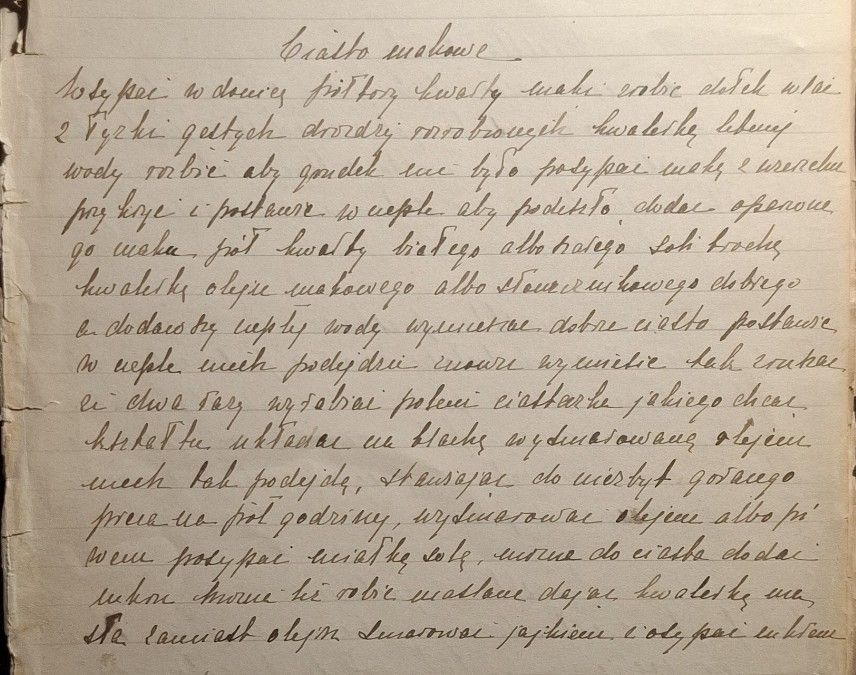 Ciasto makowe
Wsypać w donicę półtory kwarty mąki zrobić dołek wlać
2 łyżki gęstych drożdży rozrobionych kwaterką letniej
wody rozbić aby grudek nie było posypać mąką z wierzchu
przykryć i postawić w cieple aby podeszło, dodać oparzone
go maku pół kwarty białego albo szarego soli trochę
kwaterkę oleju makowego albo słonecznikowego dobrego
a dodawszy ciepłej wody wymieszać dobrze ciasto postawić
w cieple niech podejdzie znowu wymiesić tak
ci dwa razy wyrabiać potem ciasteczka jakiego chcąc
kształtu układać na blachę wysmarowaną olejem
niech tak podejdą, stawiając do niezbyt gorącego
pieca na pół godziny, wysmarować olejem albo pi
wem posypać miałką solą, można do ciasta dodać
cukru można też robić maślane dając kwaterkę ma
sła zamiast oleju smarować jajkiem i osypać cukrem